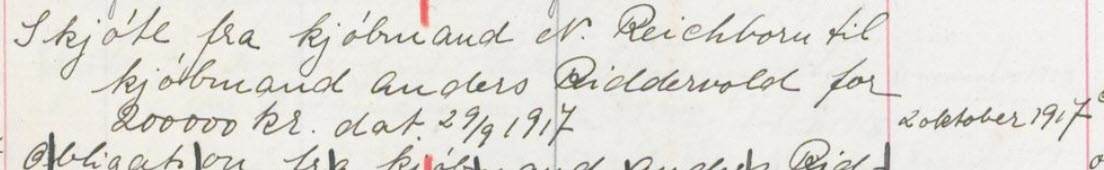 Skjöte fra kjöbmand N. Reichborn til
kjöbmand Anders Riddervold for
200000 kr. dat. 29/9 1917
2 oktober 1917
Obligation fra kjöbmand Anders Rid-